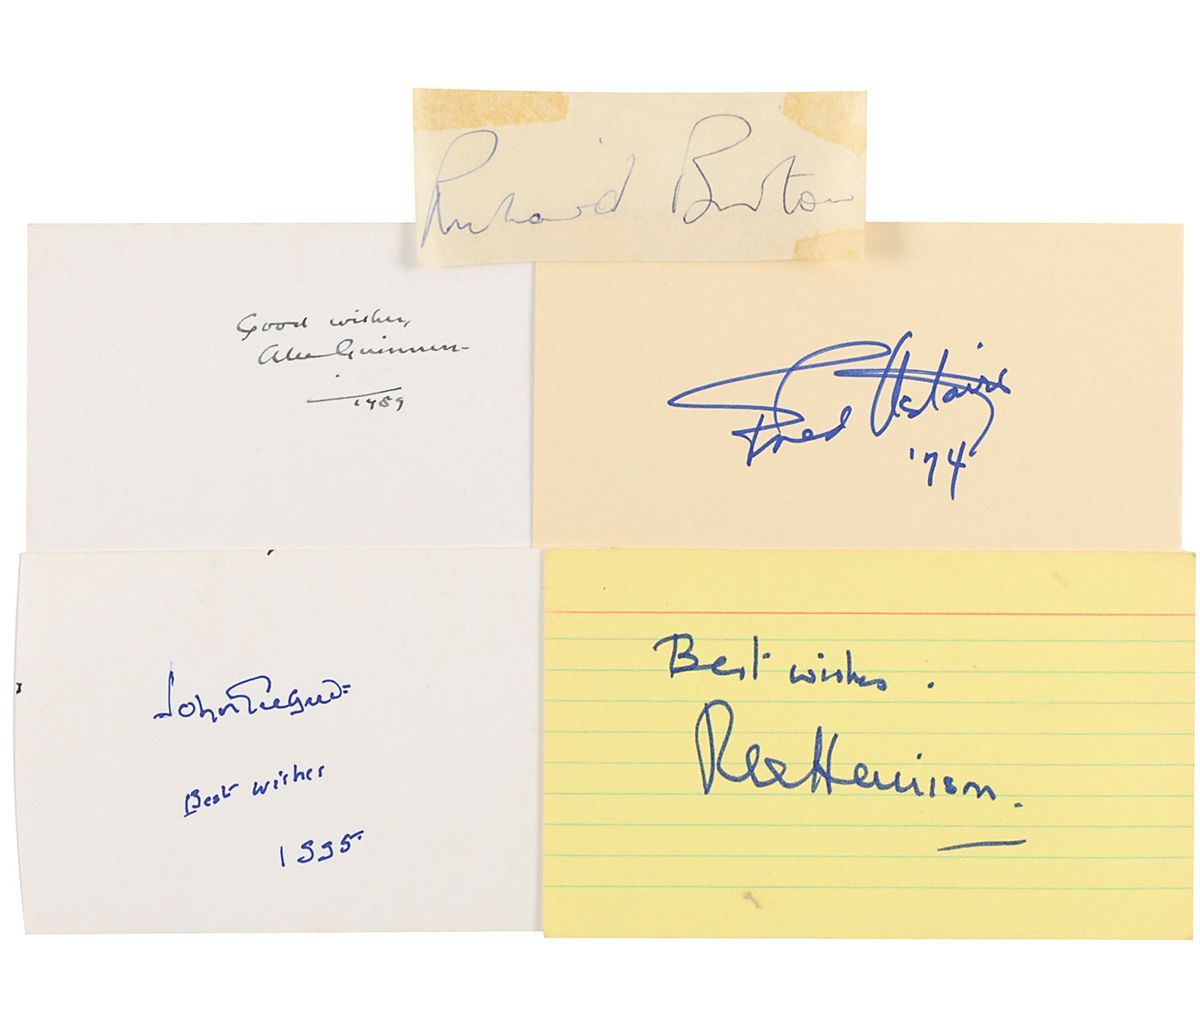 Richard Burton
Good wishes,
Alec Guinness
1989
Fred Astaire
'74
John Gielgud
Best wishes
1995.
Best wishes.
Rex Harrison.